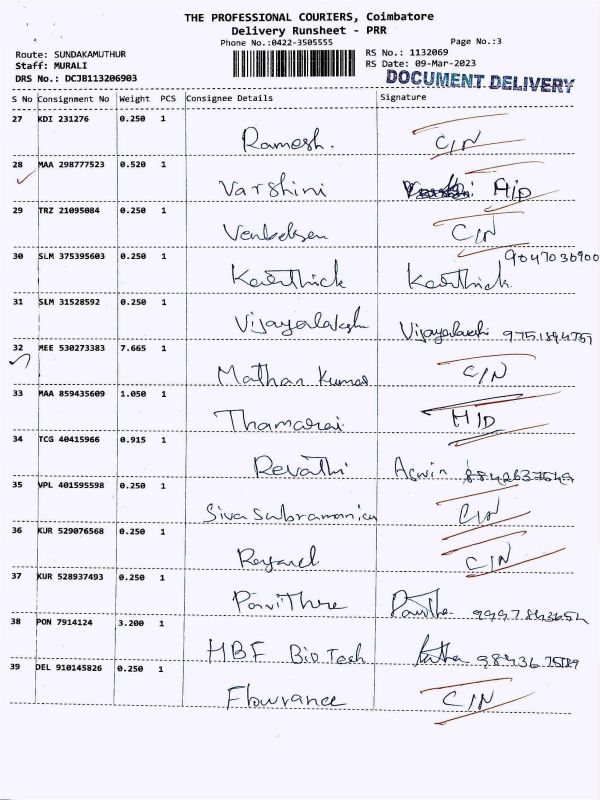 THE PROFESSIONAL COURIERS, Coimbatore
Delivery Runsheet - PRR
Phone No.:0422-3505555
Page No.:3
Route: SUNDAKAMUTHUR
RS No.: 1132069
Staff: MURALI
RS Date: 09-Mar-2023
DRS No.: DCJB113206903
DOCUMENT DELIVERY
S No Consignment No Weight PCS Consignee Details Signature
27 KDI 231276 0.250 1
Ramesh. C/N
28 MAA 298777523 0.520 1
Varshini H/D
29 TRZ 21095084 0.250 1
C/N
30 SLM 375395603 0.250 1 9047036900
Karthick Karthick
31 SLM 31528592 0.250 1
Vijayalaksh Vijayalakshi
32 MEE 530273383 7.665 1
Mathan Kumar C/N
33 MAA 859435609 1.050 1
Thamarai H/D
34 TCG 40415966 0.915 1
Revathi Aswin
35 VPL 401595598 0.250 1
Sivasubramaniam C/N
36 KUR 529076568 0.250 1
C/N
37 KUR 528937493 0.250 1
Pavithra
38 PON 7914124 3.200 1
HBF Bio Tech
39 DEL 910145826 0.250 1
Flowrance C/N